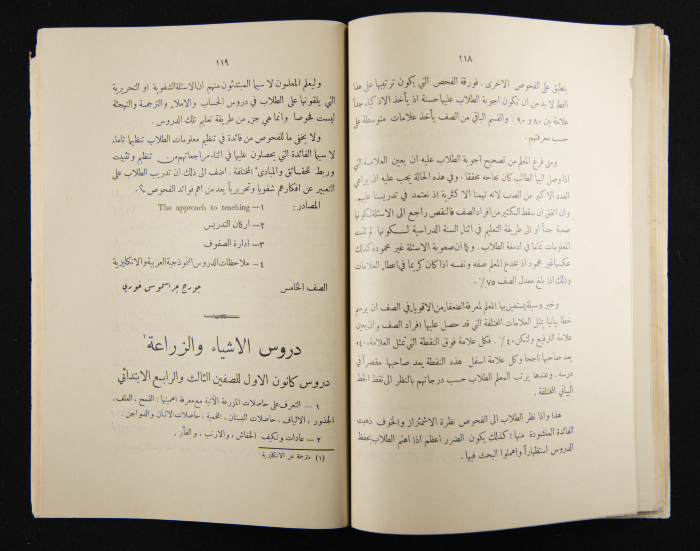 ١١٨
ينطبق على الفحوص الاخرى . فورقة الفحص التي يكون ترتيبها على هذا
النمط لا بد من ان تكون اجوبة الطلاب عليها حسنة اذ يأخذ الاذكياء جداً
علامة بين ٨٠ و ٩٠٪ والقسم الباقي من الصف يأخذ علامات متوسطة على
حسب معرفتهم .
ومتى فرغ المعلم من تصحيح اجوبة الطلاب عليه ان يعين العلامة التي
اذا وصل اليها الطالب كان نجاحه محققا ، وفي هذه الحالة يجب عليه ان يراعي
العدد الاكبر من الصف لانه تهمنا الاكثرية اذ نعتمد في تدريسنا عليهم .
وان اتفق ان سقط الكثير من افراد الصف فالنقص راجع الى الاسئلة لكونها
صعبة جداً او الى طريقة التعليم في اثناء السنة الدراسية لكونها لم تثبت
المعلومات تماما في ادمغة الطلاب . وكما ان صعوبة الاسئلة غير محمودة كذلك
عكسها غير محمود اذ يخدع المعلم صفه ونفسه اذا كان كريما في اعطاء العلامات
وذلك اذا بلغ معدل الصف ٧٥٪ .
وخير وسيلة يستعين بها المعلم لمعرفة الضعفاء من الاقوياء في الصف ان يرسم
خطا بيانيا يمثل العلامات المختلفة التي قد حصل عليها افراد الصف وان يعين
علامة الترفيع ولتكن ٤٠٪ . فكل علامة فوق النقطة التي تمثل العلامة ٤٠
يعد صاحبها ناجحا وكل علامة اسفل هذه النقطة يعد صاحبها مقصراً في
درسه . وعندها يرتب المعلم الطلاب حسب درجاتهم بالنظر الى نقط الخط
البياني المختلفة .
هذا واذا نظر الطلاب الى الفحوص نظرة الاشمئزاز والخوف ذهبت
الفائدة المنشودة منها ؛ كذلك يكون الضرر اعظم اذا اهتم الطلاب بحفظ
الدروس استظهاراً واهملوا البحث فيها .
١١٩
وليعلم المعلمون لا سيما المبتدئون منهم ان الاسئلة الشفوية او التحريرية
التي يلقونها على الطلاب في دروس الحساب والاملاء والترجمة والتهجئة
ليست فحوصا وانما هي جزء من طريقة تعليم تلك الدروس .
ولا يخفى ما للفحوص من فائدة في تنظيم معلومات الطلاب تنظيما تاما،
لا سيما الفائدة التي يحصلون عليها في اثناء مراجعاتهم من تنظيم وتثبيت
وربط للحقائق والمبادئ المختلفة . اضف الى ذلك ان تدريب الطلاب على
التعبير عن افكارهم شفويا وتحريرياً يعد من اهم فوائد الفحوص
المصادر : ١— The approach to teaching
٢— اركان التدريس
٣— ادارة الصفوف
٤— ملاحظات الدروس النموذجية العربية والانكليزية
الصف الخامس جورج جراسموس خوري
دروس الاشياء والزراعة ١
دروس كانون الاول للصفين الثالث والرابع الابتدائي
١ — التعرف على حاصلات المزرعة الآتية مع معرفة اهميتها : القمح ، العلف ،
الجذور ، الالياف . حاصلات البستان ، المحمية ، حاصلات الالبان والدواجن .
٢ — عادات وتكيف الخفاش ، والارنب ، والفأر .
(١) مترجمة عن الانكليزية